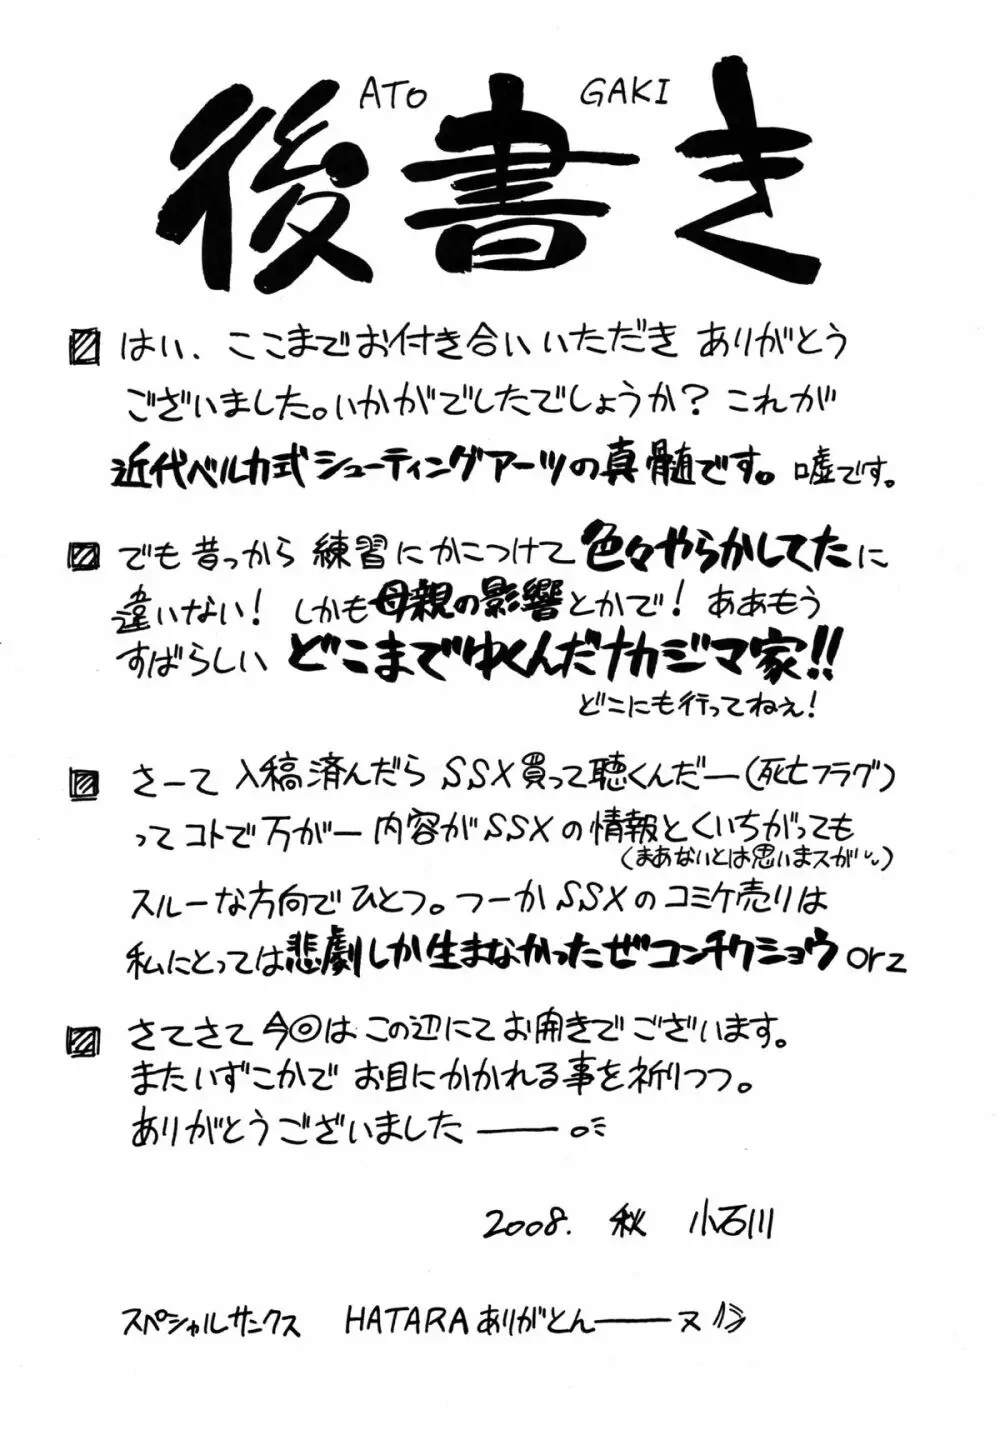 ATO GAKI
後書き
はい、ここまでお付き合いいただき ありがとう
ございました。いかがでしたでしょうか？ これが
近代ベルカ式シューティングアーツの真髄です。嘘です。
でも昔っから 練習にかこつけて色々やらかしてたに
違いない！ しかも母親の影響とかで！ ああもう
すばらしい どこまでゆくんだナカジマ家!!
どこにも行ってねえ！
さーて 入稿済んだら SSX買って聴くんだー(死亡フラグ)
ってコトで万が一 内容がSSXの情報とくいちがっても
(まあないとは思いまスが)
スルーな方向でひとつ。つーかSSXのコミケ売りは
私にとっては悲劇しか生まなかったぜコンチクショウ orz
さてさて今回はこの辺にてお開きでございます。
またいずこかで お目にかかれる事を祈りつつ。
ありがとうございました——
2008. 秋 小石川
スペシャルサンクス HATARAありがとん——ヌ